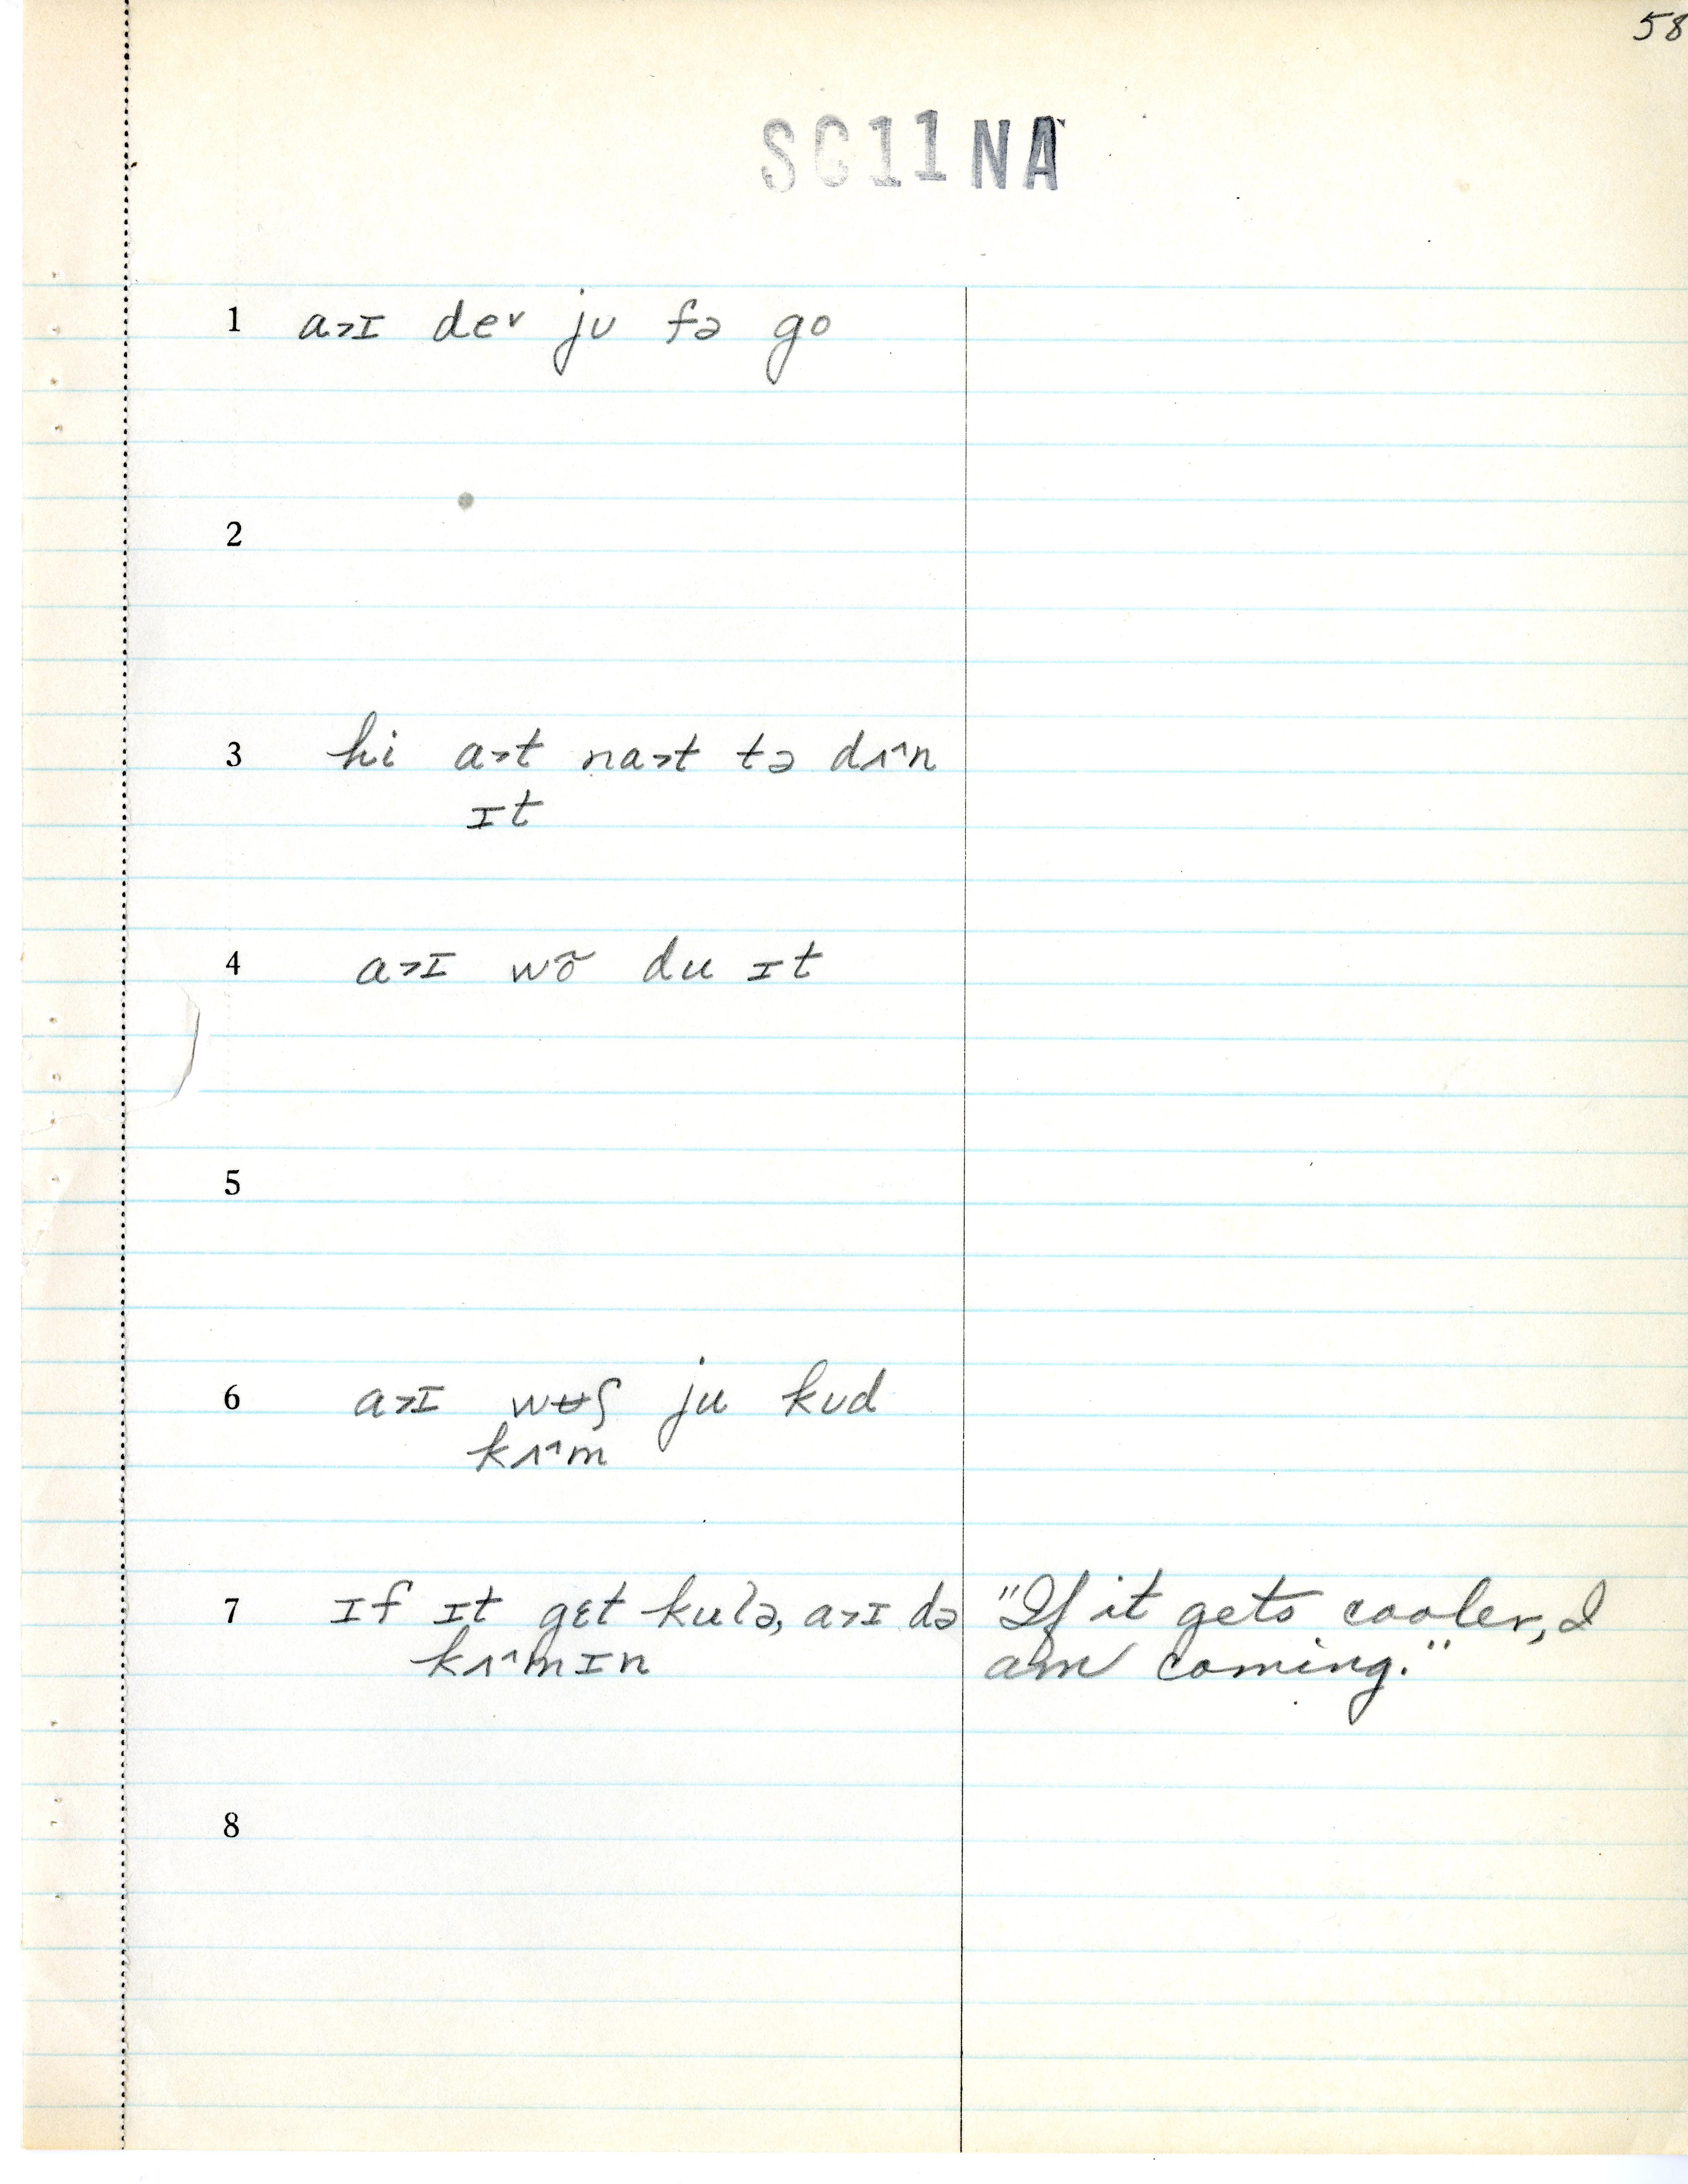 58
SC11NA
1 a>ɪ deᵛ ju fə go
2
3 hi a>t na>t tə dʌ^n
ɪt
4 a>ɪ wõ du ɪt
5
6 a>ɪ wʉʃ ju kʊd
kʌ^m
7 ɪf ɪt gɛt kulə, a>ɪ də "If it gets cooler, I
kʌ^mɪn am coming."
8